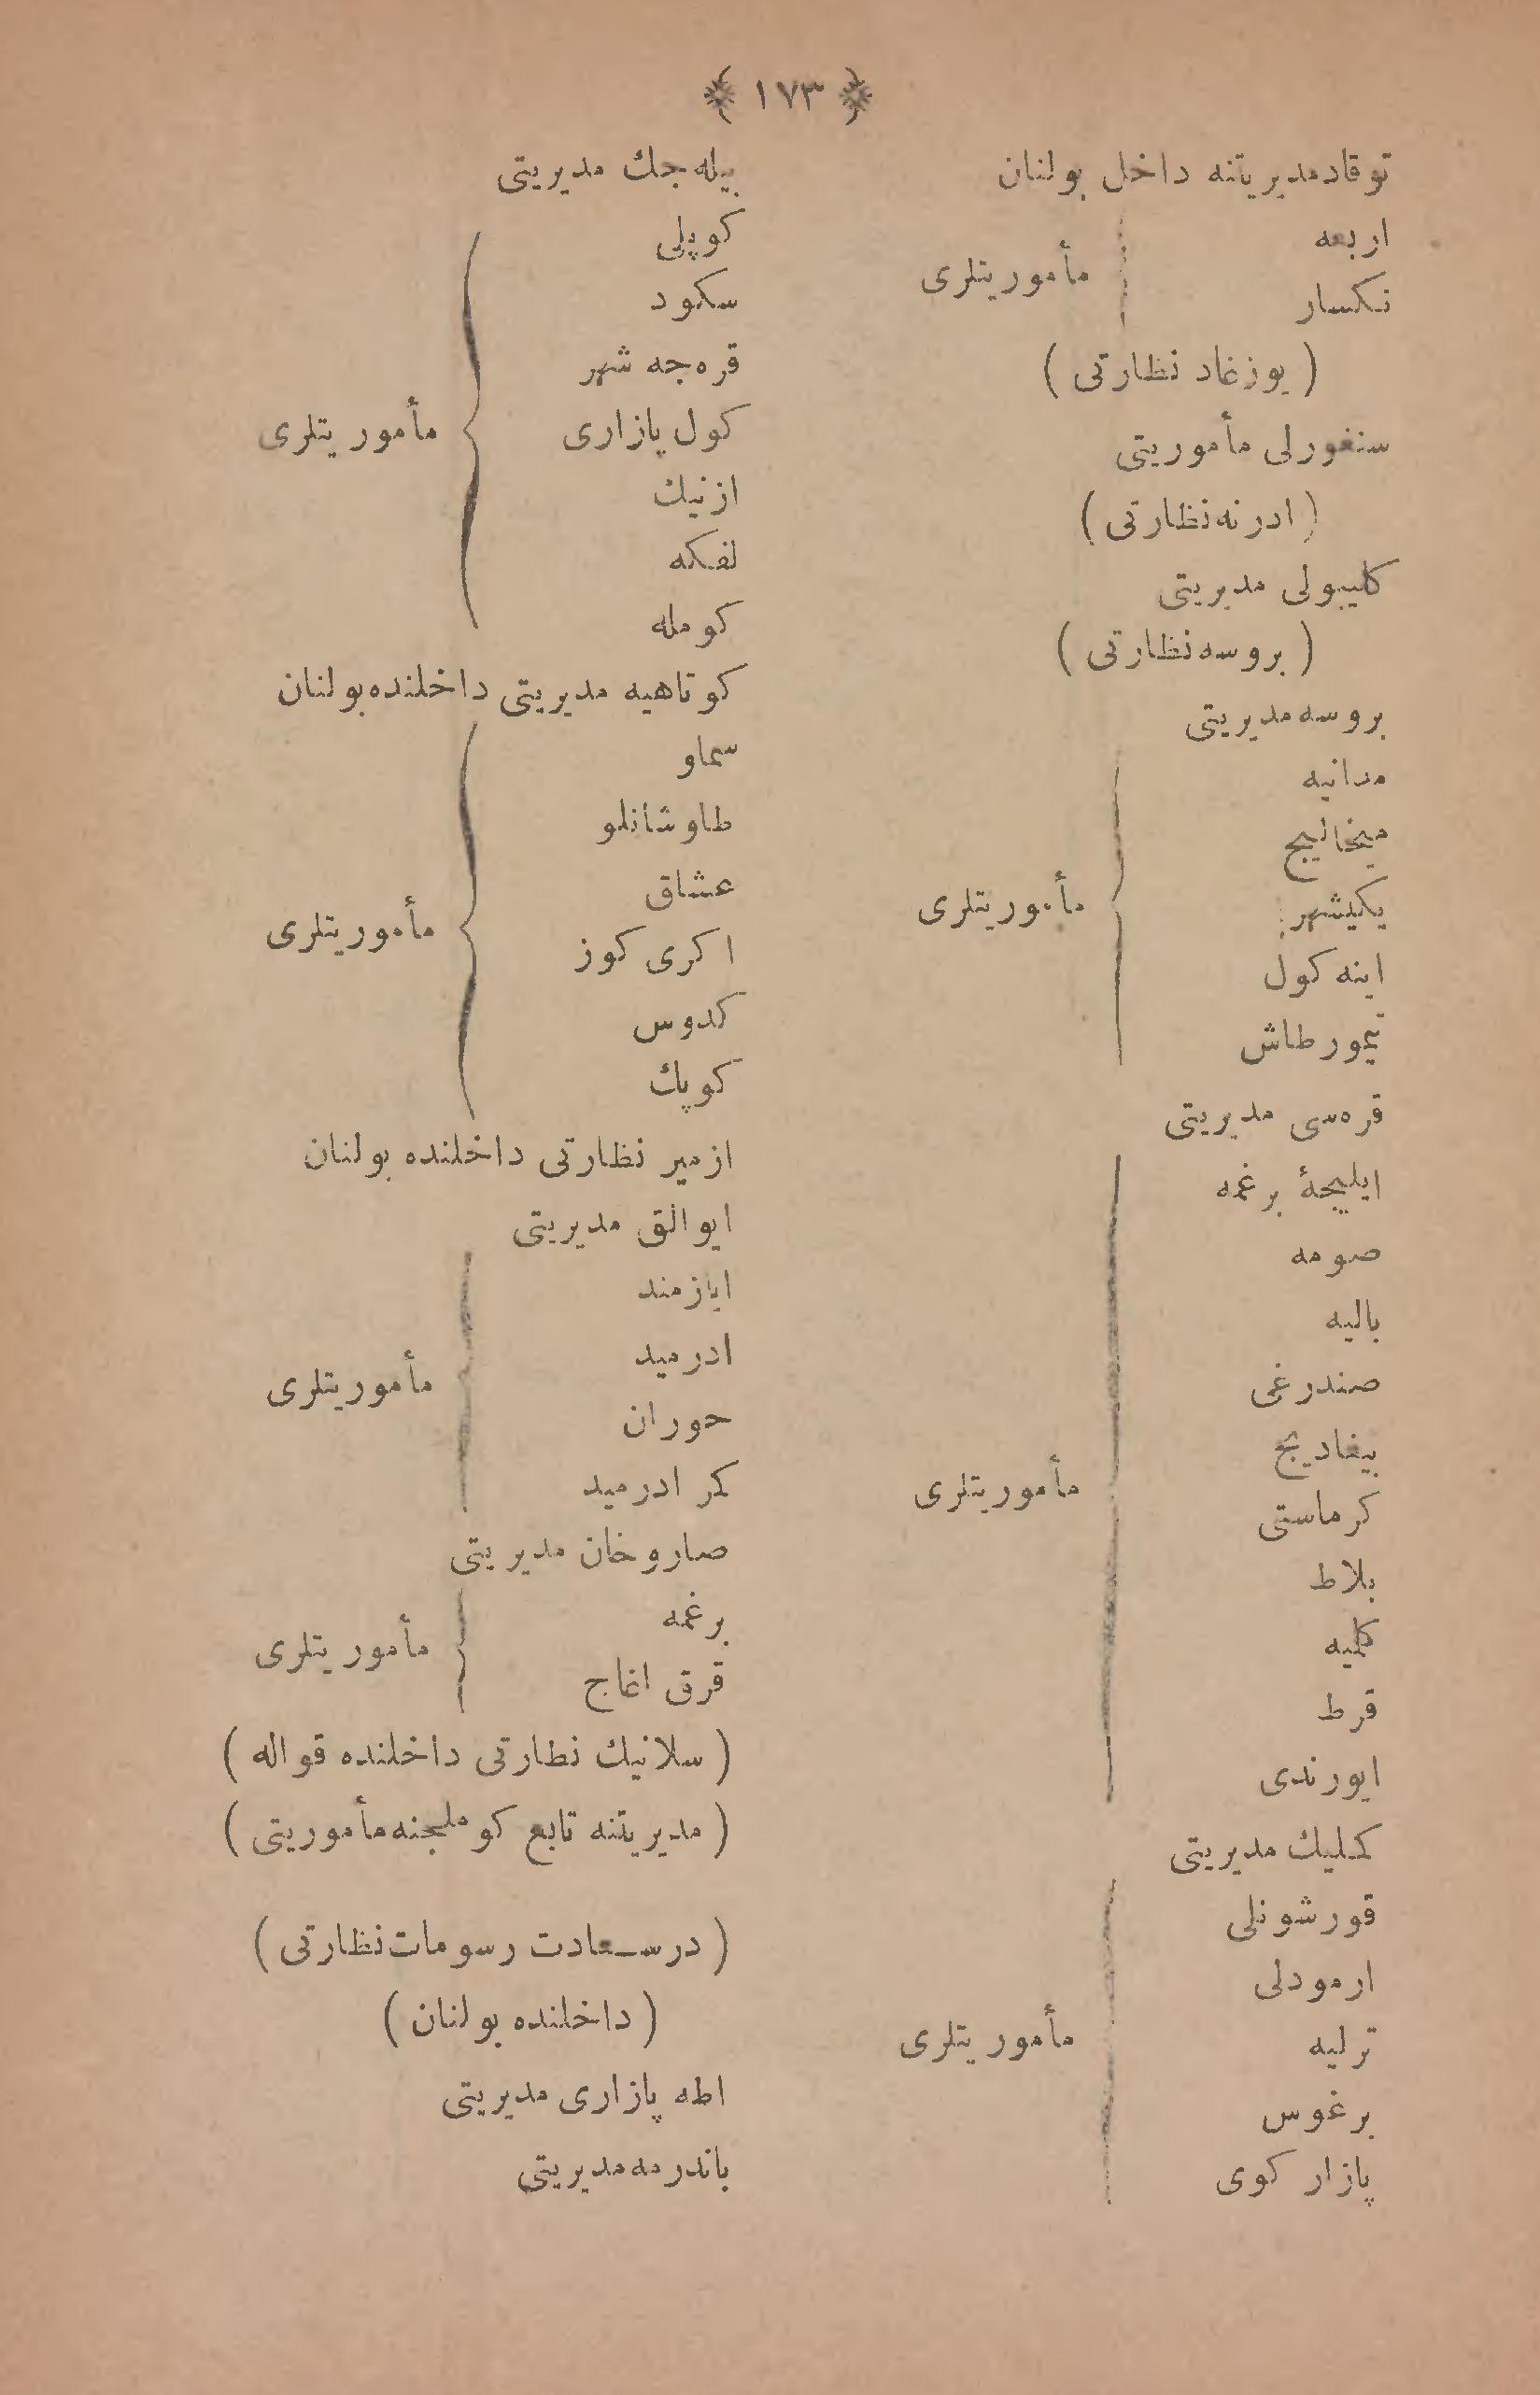 ﴿ ١٧٣ ﴾
توقاد مديريتنه داخل بولنان
اربعه
نكسار
مأموريتلرى
( يوزغاد نظارتى )
سنغورلى مأموريتى
( ادرنه نظارتى )
كليبولى مديريتى
( بروسه نظارتى )
بروسه مديريتى
مدانيه
ميخاليج
يكيشهر
اينه كول
تيمورطاش
مأموريتلرى
قره سى مديريتى
ايليجۀ برغمه
صومه
باليه
صندرغى
بيغاديج
كرماستى
بلاط
كليه
قرط
ايورندى
مأموريتلرى
كمليك مديريتى
قورشونلى
ارمودلى
ترليه
برغوس
پازار كوى
مأموريتلرى
بيله جك مديريتى
كوپلى
سكود
قره جه شهر
كول پازارى
ازنيك
لفكه
كومله
مأموريتلرى
كوتاهيه مديريتى داخلنده بولنان
سماو
طاوشانلو
عشاق
اكرى كوز
كدوس
كوپك
مأموريتلرى
ازمير نظارتى داخلنده بولنان
ايوالق مديريتى
ايازمند
ادرميد
حوران
كمر ادرميد
مأموريتلرى
صاروخان مديريتى
برغمه
قرق اغاج
مأموريتلرى
( سلانيك نظارتى داخلنده قواله )
( مديريتنه تابع كوملجنه مأموريتى )
( درسعادت رسومات نظارتى )
( داخلنده بولنان )
اطه پازارى مديريتى
باندرمه مديريتى